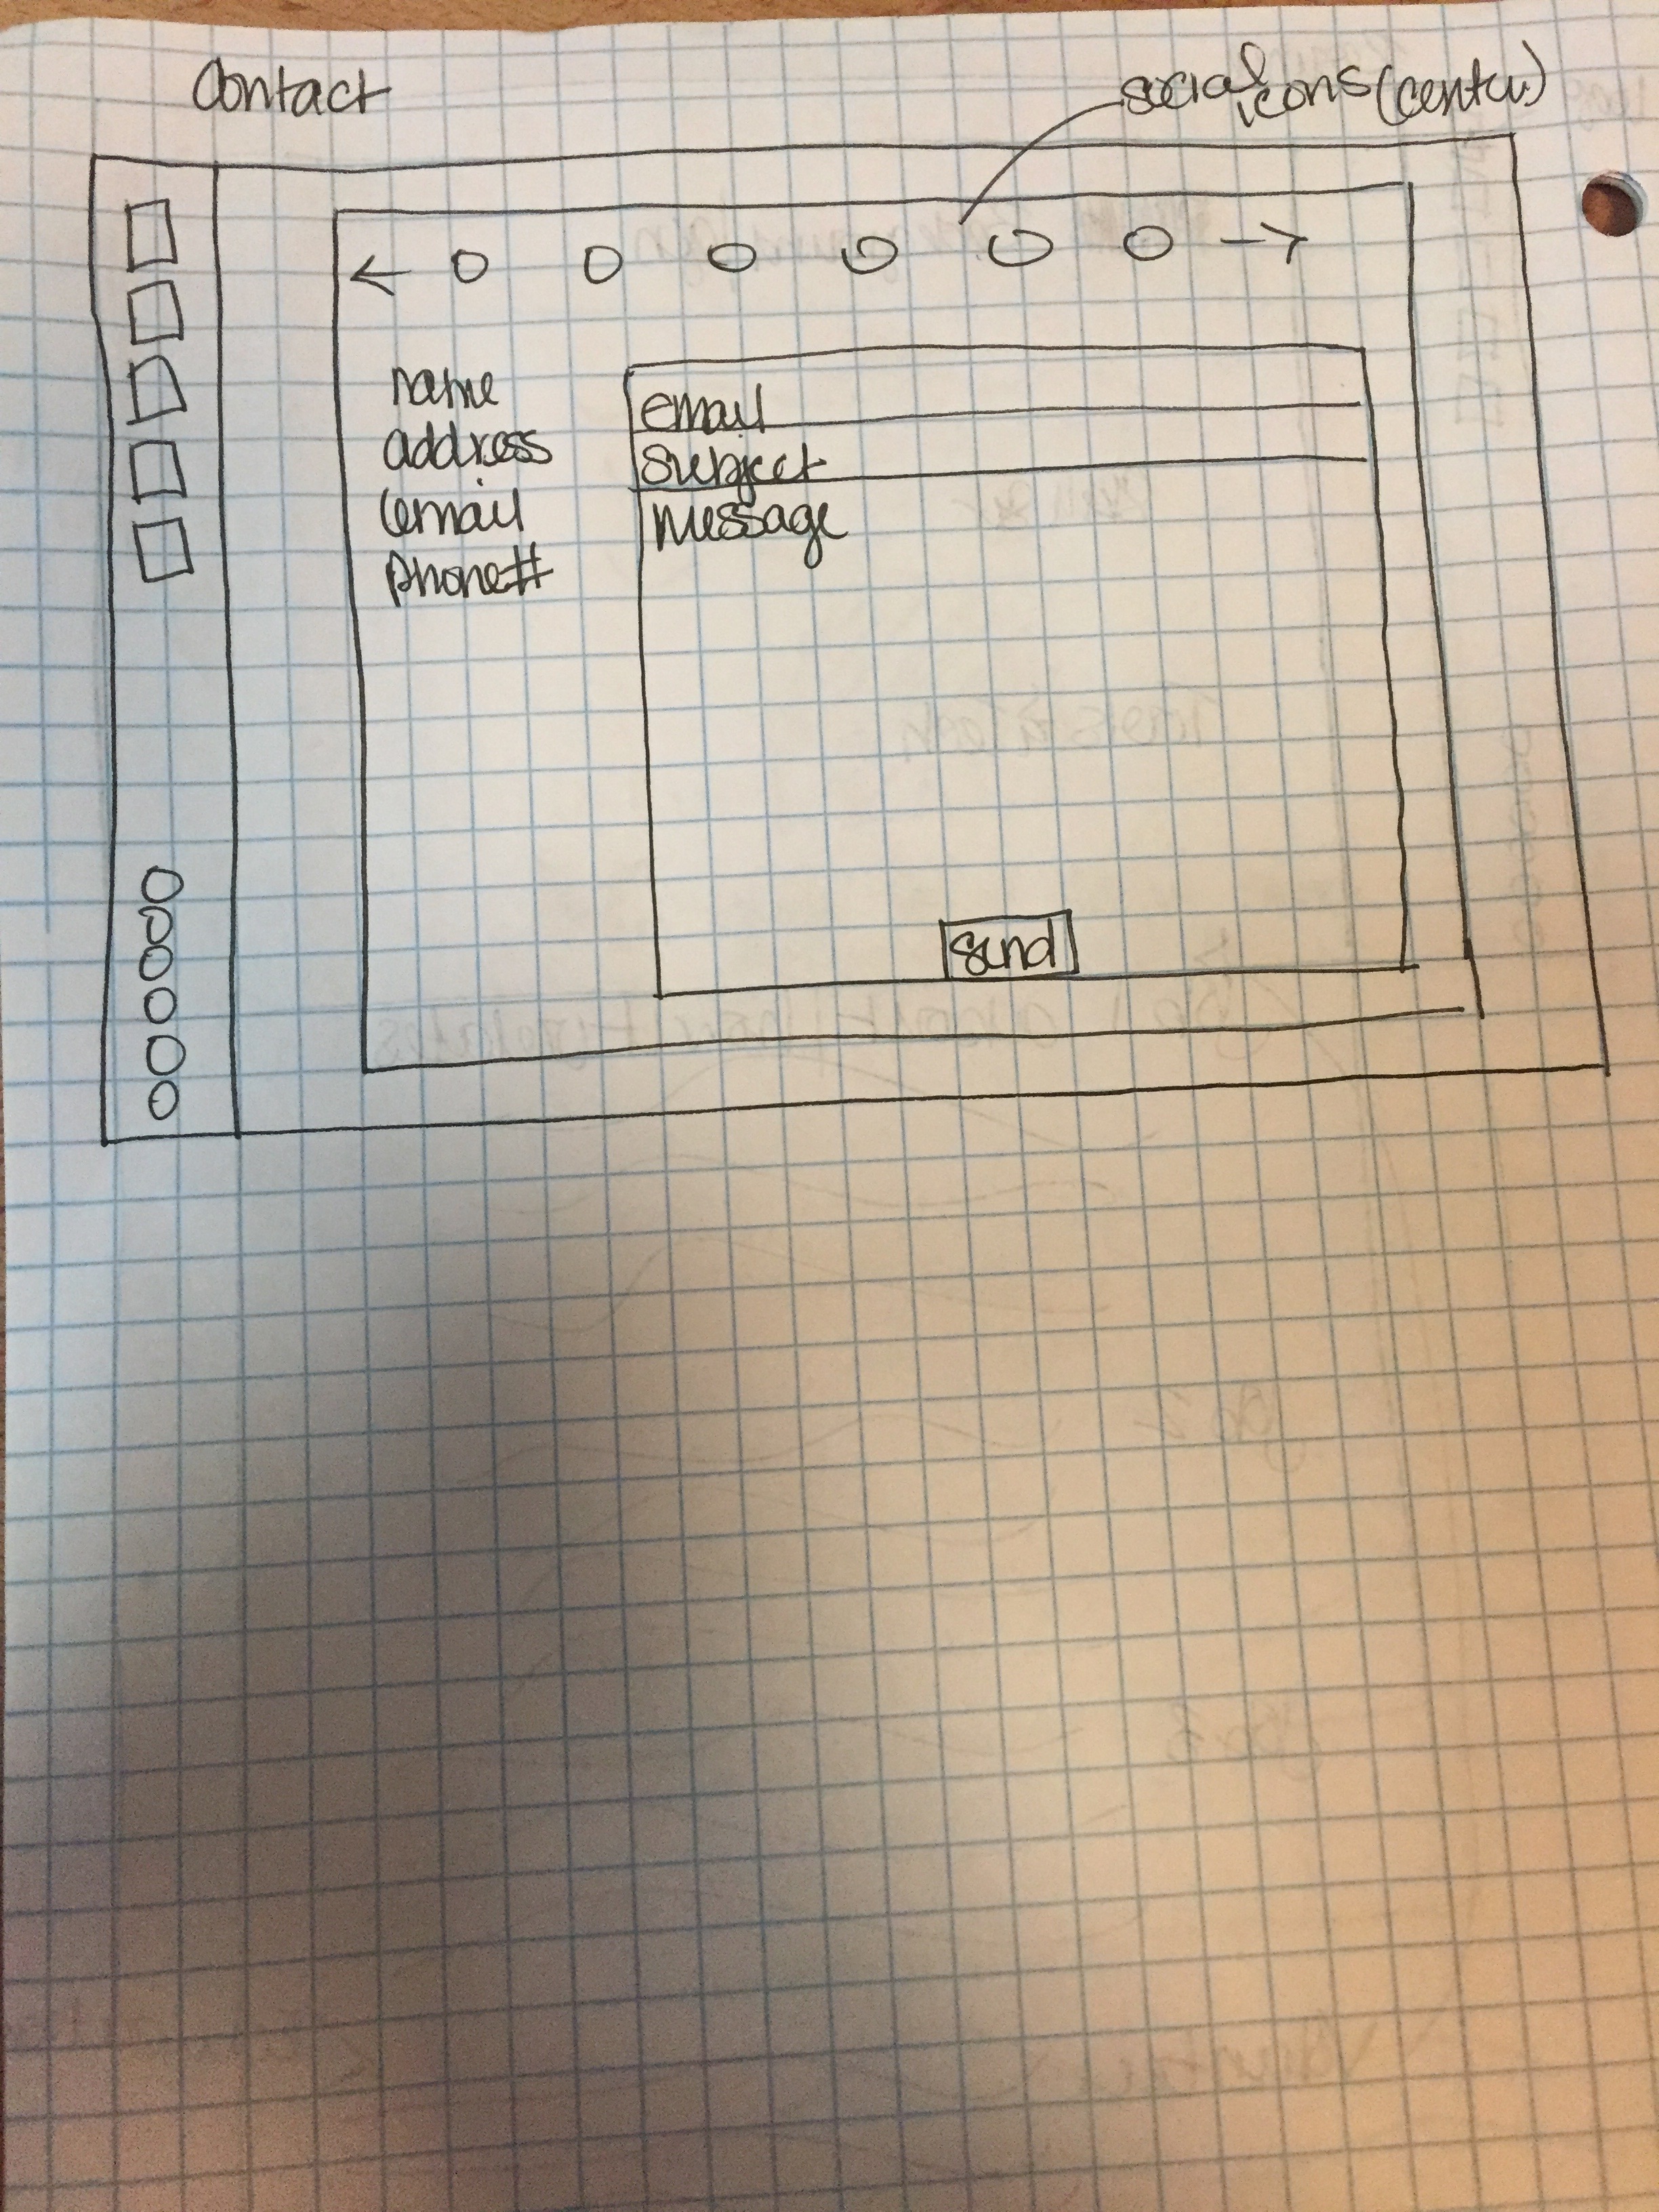 Contact
social icons (center)
name
address
email
phone#
email
subject
message
send